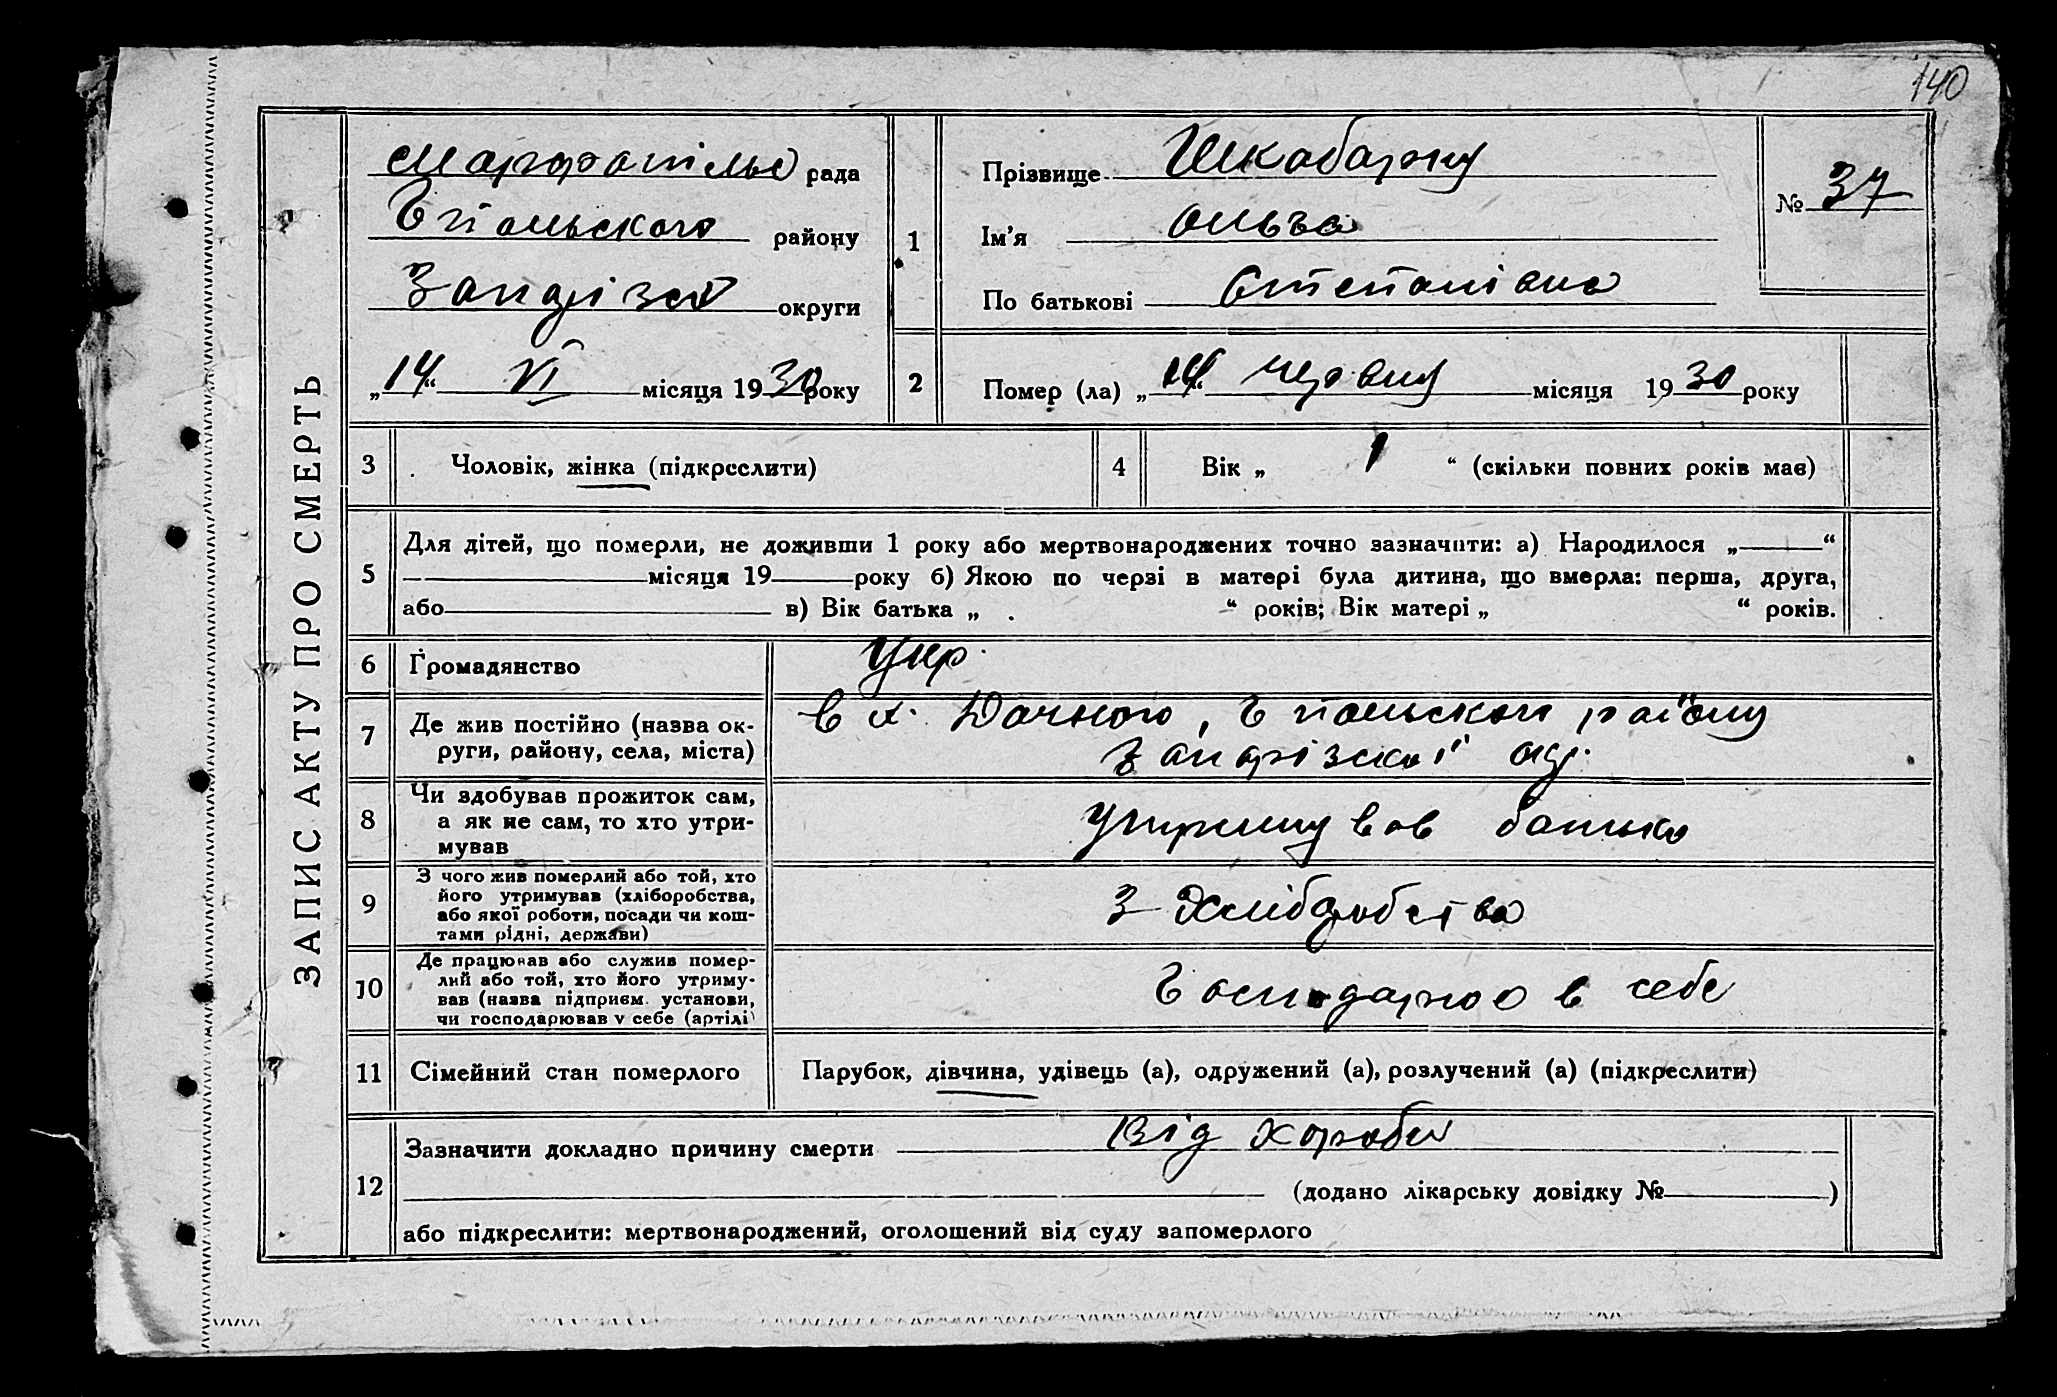 140
ЗАПИС АКТУ ПРО СМЕРТЬ
Марфопільс рада
Гпольского району
Запорізкої округи
„14“ VI місяця 1930 року
1
Прізвище
По батькові Степанівна
Ім'я Ольга
№ 37
2
Помер (ла) „14“ червня місяця 1930 року
3
Чоловік, жінка (підкреслити)
4
Вік „ 1 “ (скільки повних років має)
5
Для дітей, що померли, не доживши 1 року або мертвонароджених точно зазначити: а) Народилося „ “
місяця 19 року б) Якою по черзі в матері була дитина, що вмерла: перша, друга,
або в) Вік батька „ “ років; Вік матері „ “ років.
6
Громадянство
Укр.
7
Де жив постійно (назва ок-
руги, району, села, міста)
в х. Дачного, Гпольского району
Запорізскої окр.
8
Чи здобував прожиток сам,
а як не сам, то хто утри-
мував
утримував батько
9
З чого жив померлий або той, хто
його утримував (хліборобства,
або якої роботи, посади чи кош-
тами рідні, держави)
З хліборобства
10
Де працював або служив помер-
лий або той, хто його утриму-
вав (назва підприєм. установи,
чи господарював у себе (артілі)
Господарював в себе
11
Сімейний стан померлого
Парубок, дівчина, удівець (а), одружений (а), розлучений (а) (підкреслити)
12
Зазначити докладно причину смерти Від хороби
(додано лікарську довідку № )
або підкреслити: мертвонароджений, оголошений від суду запомерлого